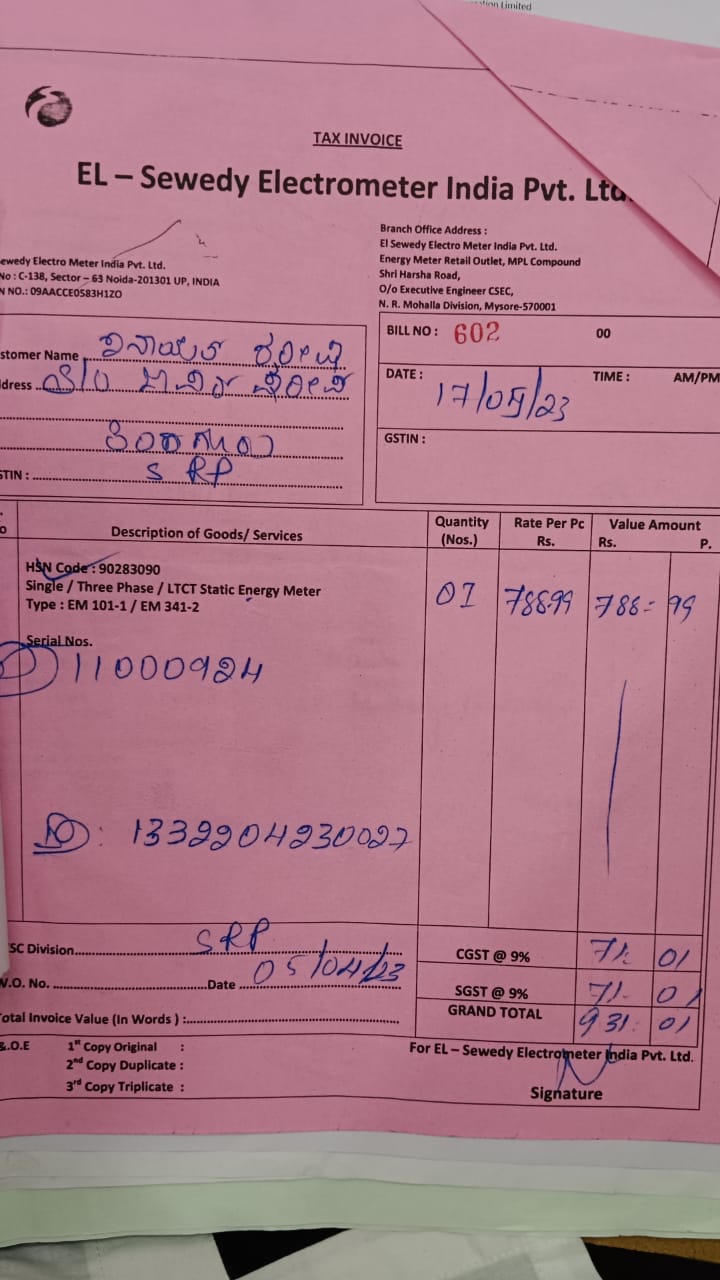 ation Limited
TAX INVOICE
EL – Sewedy Electrometer India Pvt. Ltd.
ewedy Electro Meter India Pvt. Ltd.
No : C-138, Sector – 63 Noida-201301 UP, INDIA
N NO.: 09AACCE0583H1ZO
Branch Office Address :
El Sewedy Electro Meter India Pvt. Ltd.
Energy Meter Retail Outlet, MPL Compound
Shri Harsha Road,
O/o Executive Engineer CSEC,
N. R. Mohalla Division, Mysore-570001
stomer Name
dress S/o
SRP
STIN :
BILL NO : 602 00
DATE : 17/05/23 TIME : AM/PM
GSTIN :
Description of Goods/ Services Quantity (Nos.) Rate Per Pc Rs. Value Amount Rs. P.
HSN Code : 90283090
Single / Three Phase / LTCT Static Energy Meter
Type : EM 101-1 / EM 341-2
01 788.99 788= 99
Serial Nos.
11000924
: 1332204230027
SC Division SRP
W.O. No. Date 05/04/23
otal Invoice Value (In Words ) :
CGST @ 9% 71. 01
SGST @ 9% 71. 01
GRAND TOTAL 931. 01
&.O.E 1st Copy Original :
2nd Copy Duplicate :
3rd Copy Triplicate :
For EL – Sewedy Electrometer India Pvt. Ltd.
Signature